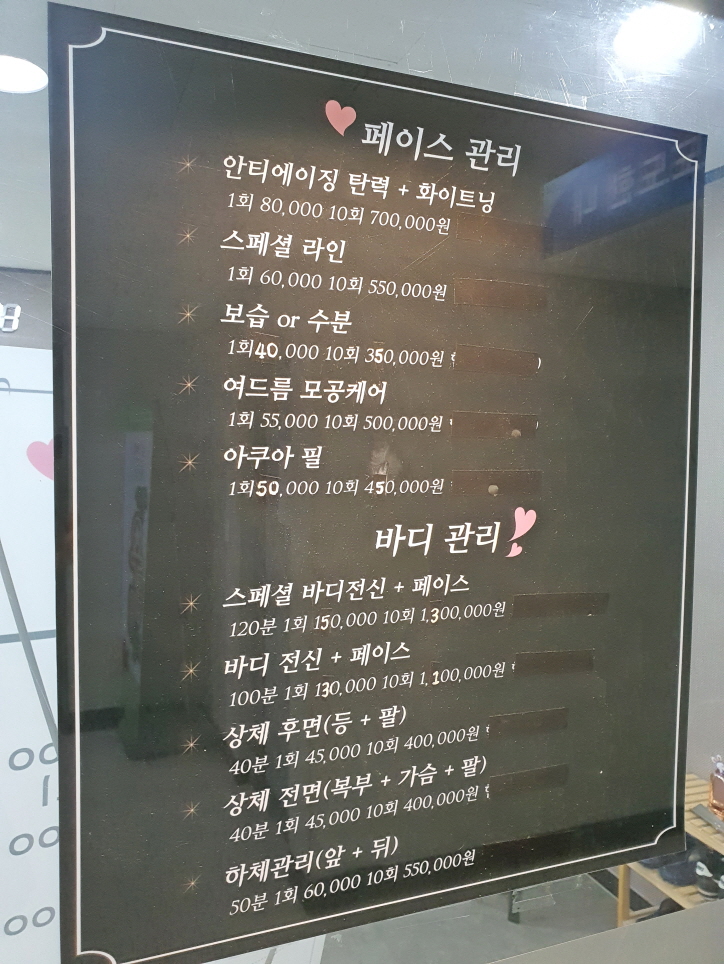 페이스 관리
안티에이징 탄력 + 화이트닝
1회 80,000 10회 700,000원
스페셜 라인
1회 60,000 10회 550,000원
보습 or 수분
1회40,000 10회 350,000원
여드름 모공케어
1회 55,000 10회 500,000원
아쿠아 필
1회50,000 10회 450,000원
바디 관리
스페셜 바디전신 + 페이스
120분 1회 150,000 10회 1,300,000원
바디 전신 + 페이스
100분 1회 130,000 10회 1,100,000원
상체 후면(등 + 팔)
40분 1회 45,000 10회 400,000원
상체 전면(복부 + 가슴 + 팔)
40분 1회 45,000 10회 400,000원
하체관리(앞 + 뒤)
50분 1회 60,000 10회 550,000원